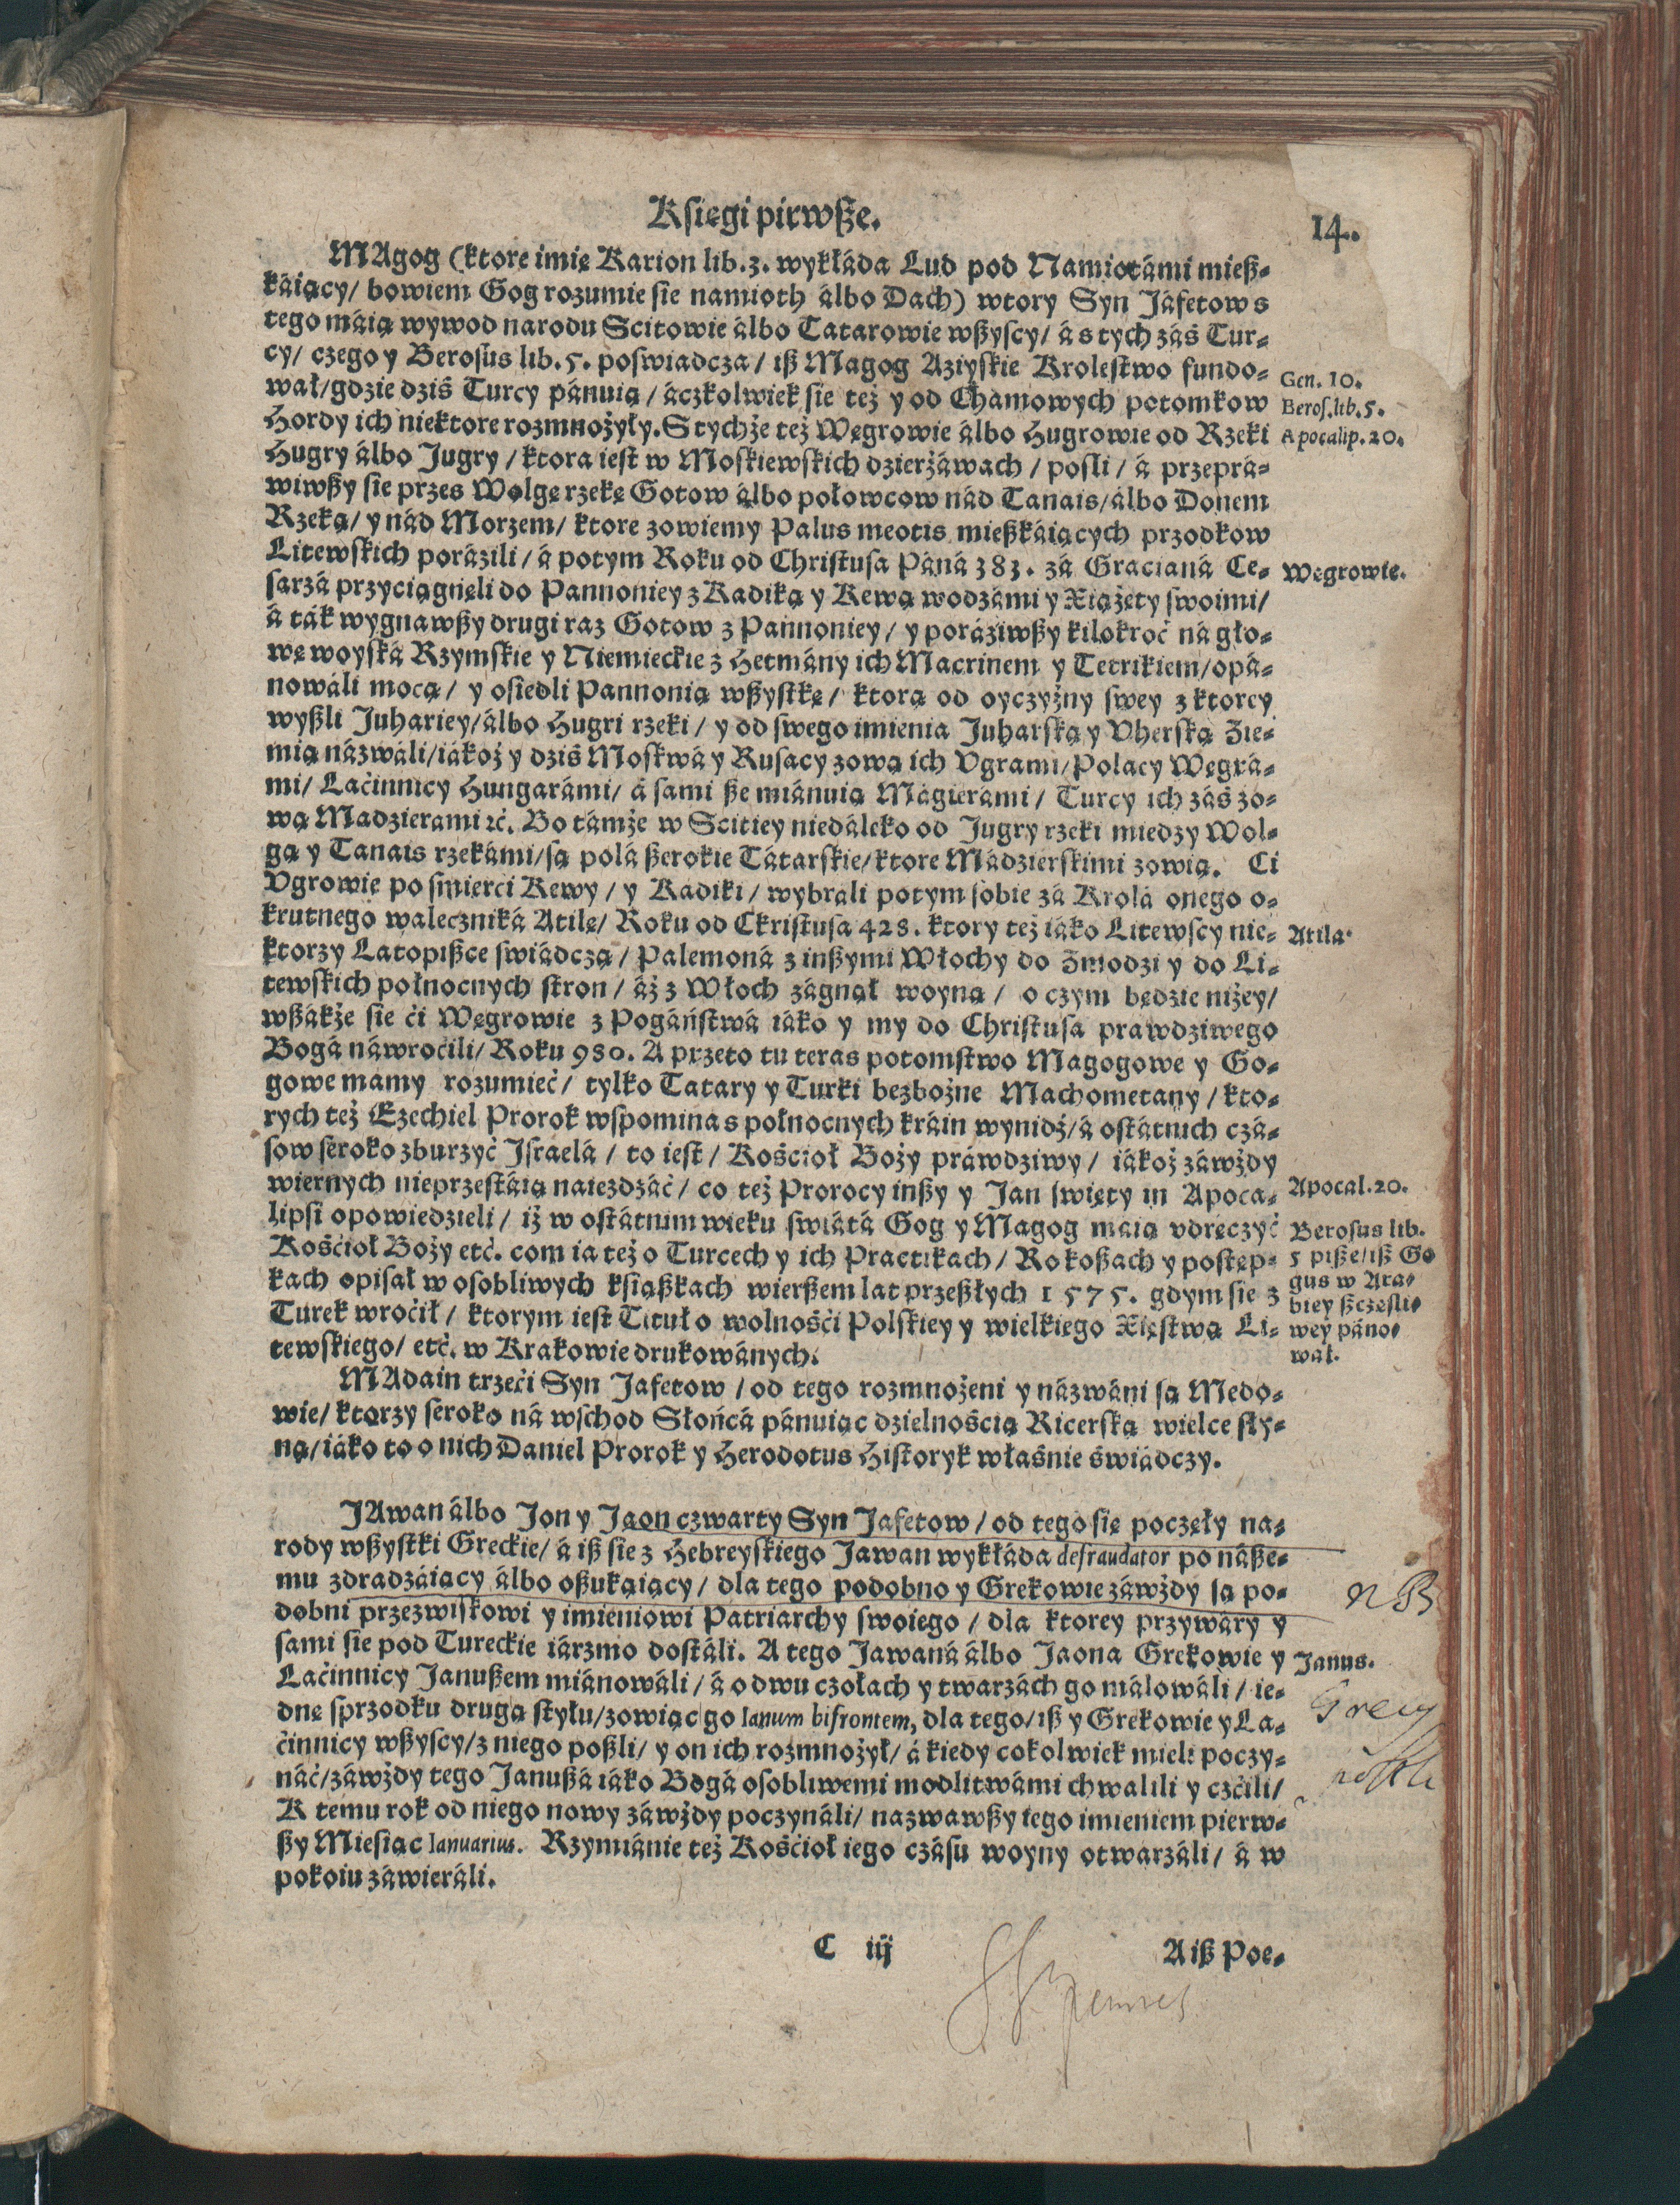 Księgi pirwsze.
14.
MAgog (ktore imię Karion lib. 3. wykłáda Lud pod Namiotámi miesz-
káiący/ bowiem Gog rozumie sie namioth álbo Dach) wtory Syn Jáfetow s
tego máią wywod narodu Scitowie álbo Tatarowie wszyscy/ á s tych záś Tur-
cy/ czego y Berosus lib. 5. poswiadcza/ isz Magog Aziyskie Krolestwo fundo-
wał/ gdzie dziś Turcy pánuią/ áczkolwiek sie też y od Chamowych potomkow
Hordy ich niektore rozmnożyły. S tychże też Węgrowie álbo Hugrowie od Rzeki
Hugry álbo Jugry/ ktora iest w Moskiewskich dzierżáwach/ posli/ á przeprá-
wiwszy sie przes Wolgę rzekę Gotow álbo połowcow nád Tanais/ álbo Donem
Rzeką/ y nád Morzem/ ktore zowiemy Palus meotis mieszkáiących przodkow
Litewskich porázili/ á potym Roku od Christusa Páná 383. zá Gracianá Ce-
sarzá przyciągnęli do Pannoniey z Kadiką y Kewą wodzámi y Xiążęty swoimi/
á ták wygnawszy drugi raz Gotow z Pannoniey/ y poráziwszy kilokroć ná gło-
wę woyská Rzymskie y Niemieckie z Hetmány ich Macrinem y Tetrikiem/ opá-
nowáli mocą/ y osiedli Pannonią wszystkę/ ktorą od oyczyżny swey z ktorey
wyszli Juhariey/ álbo Hugri rzeki/ y od swego imienia Juharską y Vherską Zie-
mią názwáli/ iákoż y dziś Moskwá y Rusacy zową ich Vgrami/ Polacy Węgrá-
mi/ Laćinnicy Hungarámi/ á sami sze miánuią Mágierámi/ Turcy ich záś zo-
wą Madzierami ꝛć. Bo támże w Scitiey niedáleko od Jugry rzeki miedzy Wol-
gą y Tanais rzekámi/ są polá szerokie Tátarskie/ ktore Mádzierskimi zowią. Ci
Vgrowie po śmierci Kewy/ y Kadiki/ wybrali potym sobie zá Krolá onego o-
krutnego waleczniká Atilę/ Roku od Ckristusa 428. ktory też iáko Litewscy nie-
ktorzy Latopiszce swiádczą/ Palemoná z inszymi Włochy do Zmodzi y do Li-
tewskich połnocnych stron/ áż z Włoch zágnał woyną/ o czym będzie niżey/
wszákże sie ći Węgrowie z Pogáństwá iáko y my do Christusa prawdziwego
Bogá náwroćili/ Roku 980. A przeto tu teras potomstwo Magogowe y Go-
gowe mamy rozumieć/ tylko Tatary y Turki bezbożne Machometany/ kto-
rych też Ezechiel Prorok wspomina s połnocnych kráin wynidź/ á ostátnich czá-
sow seroko zburzyć Israelá/ to iest/ Kośćioł Boży práwdziwy/ iákoż záwżdy
wiernych nieprzestáią naiezdzáć/ co też Prorocy inszy y Jan święty in Apoca-
lipsi opowiedzieli/ iż w ostátnim wieku swiátá Gog y Magog máią vdręczyć
Kośćioł Boży etć. com ia też o Turcech y ich Practikach/ Rokoszach y postęp-
kach opisał w osobliwych ksiąszkach wierszem lat przeszłych 1575. gdym sie z
Turek wroćił/ ktorym iest Tituł o wolnośći Polskiey y wielkiego Xięstwá Li-
tewskiego/ etć. w Krakowie drukowánych.
MAdain trzeći Syn Jafetow/ od tego rozmnożeni y názwáni są Medo-
wie/ ktorzy seroko ná wschod Słońcá pánuiąc dzielnośćią Ricerską wielce sły-
ną/ iáko to o nich Daniel Prorok y Herodotus Historyk właśnie świádczy.
JAwan álbo Jon y Jaon czwarty Syn Jafetow/ od tego się poczęły na-
rody wszystki Greckie/ á isz sie z Hebreyskiego Jawan wykłáda defraudator po násze-
mu zdradzáiący álbo oszukáiący/ dla tego podobno y Grekowie záwżdy są po-
dobni przezwiskowi y imieniowi Patriarchy swoiego/ dla ktorey przywáry y
sami sie pod Tureckie iárzmo dostáli. A tego Jawaná álbo Jaona Grekowie y
Laćinnicy Januszem miánowáli/ á o dwu czołach y twarzách go málowáli/ ie-
dnę sprzodku drugą stylu/ zowiąc go Ianum bifrontem, dla tego/ isz y Grekowie y La-
ćinnicy wszyscy/ z niego poszli/ y on ich rozmnożył/ á kiedy cokolwiek mieli poczy-
náć/ záwżdy tego Januszá iáko Bogá osobliwemi modlitwámi chwalili y czćili/
K temu rok od niego nowy záwżdy poczynáli/ nazwawszy iego imieniem pierw-
szy Miesiąc Ianuarius. Rzymiánie też Kośćioł iego czásu woyny otwarzáli/ á w
pokoiu záwieráli.
C iij
A isz Poe-
Gen. 10.
Beros. lib. 5.
Apocalip. 20.
Węgrowie.
Atila.
Apocal. 20.
Berosus lib.
5 pisze/ isz Go
gus w Ara-
biey szczesli-
wey páno-
wał.
NB
Janus.
Grecy